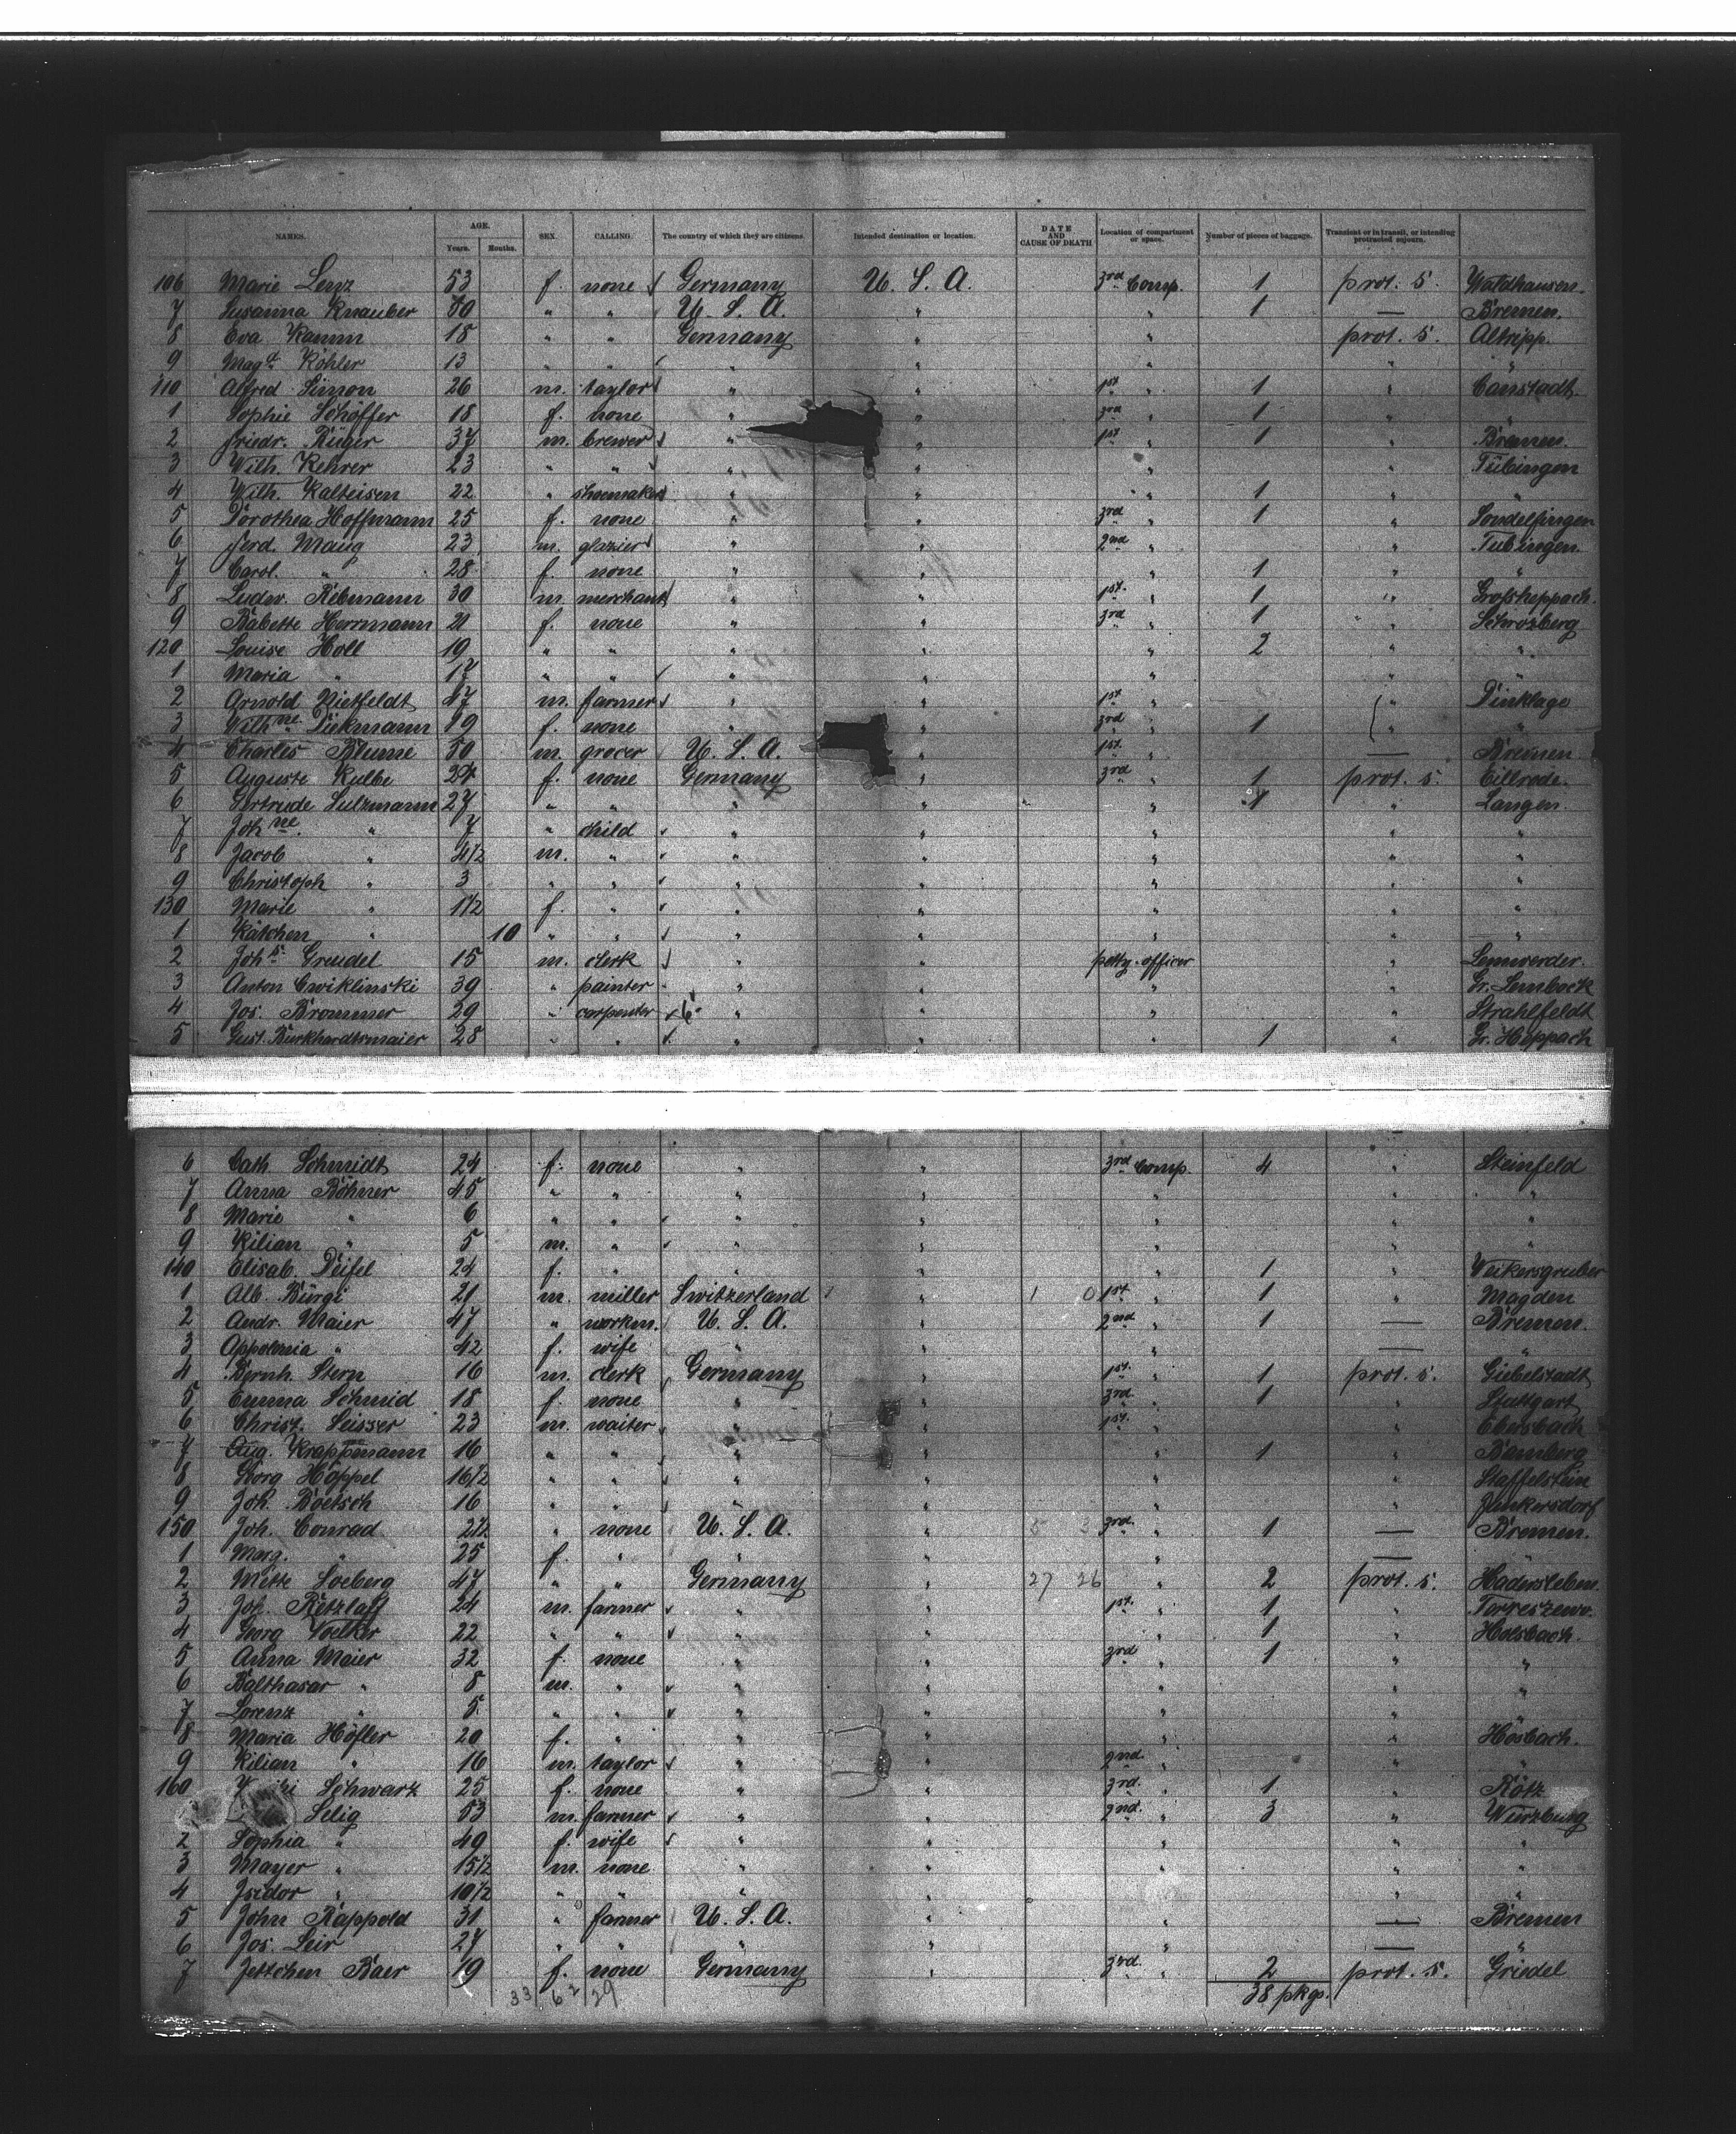 NAMES. AGE. Years. Months. SEX. CALLING. The country of which they are citizens. Intended destination or location. DATE AND CAUSE OF DEATH Location of compartment or space. Number of pieces of baggage. Transient or in transit, or intending protracted sojourn.
106 Marie Lenz 53 f. none Germany U. S. A. 3rd Comp. 1 prot. S. Waldhausen.
7 Susanna Knauber 30 " " U. S. A. " " 1 — Bremen.
8 Eva Kamm 18 " " Germany " " prot. S. Altripp.
9 Magd. Köhler 13 " " " " " "
110 Alfred Simon 26 m. taylor " " 1st " 1 " Canstadt.
1 Sophie Schöffer 18 f. none " " 3rd " 1 " "
2 Friedr. Rüger 37 m. brewer " " 1st " 1 " Bremen.
3 Wilh. Kehrer 23 " " " " " " Tübingen
4 Wilh. Kalteisen 22 " shoemaker " " " 1 " "
5 Dorothea Hoffmann 25 f. none " " 3rd " 1 " Sondelfingen
6 Ferd. Maug 23 m. glazier " " 2nd " " Tübingen.
7 Carol. " 28 f. none " " " 1 " "
8 Ludw. Rebmann 30 m. merchant " " 1st " 1 " Grossheppach.
9 Babette Herrmann 21 f. none " " 3rd " 1 " Schrozberg
120 Louise Holl 19 " " " " " 2 " "
1 Maria " 17 " " " " " " "
2 Arnold Nietfeldt 47 m. farmer " " 1st " " Dinklage
3 Wilhne Diekmann 19 f. none " " 3rd " 1 " "
4 Charles Blume 50 m. grocer U. S. A. " 1st " — Bremen
5 Auguste Kulbe 24 f. none Germany " 3rd " 1 prot. S. Cillrode.
6 Gertrude Sulzmann 27 " " " " " 1 " Langen.
7 Johne. " 7 " child " " " " "
8 Jacob " 4 1/2 m. " " " " " "
9 Christoph " 3 " " " " " " "
130 Marie " 1 1/2 f. " " " " " "
1 Kätchen " 10 " " " " " " "
2 Johs. Greudel 15 m. clerk " " petty-officer " Lemwerder.
3 Anton Cwiklinski 39 " painter " " " " Gr. Lembeck
4 Jos. Brommer 29 " carpenter " " " " Strahlfeldt
5 Gust. Burkhardtsmaier 28 " " " " " 1 " Gr. Heppach
6 Cath. Schmidt 24 f. none " " 3rd Comp. 4 " Steinfeld
7 Anna Böhner 45 " " " " " " "
8 Marie " 6 " " " " " " "
9 Kilian " 5 m. " " " " " "
140 Elisab. Deifel 24 f. " " " " 1 " Weikersgruber
1 Alb. Bürgi 21 m. miller Switzerland " 1 0 1st " 1 " Magden
2 Andr. Maier 47 " workm. U. S. A. " 2nd " 1 — Bremen.
3 Appolonia " 42 f. wife " " " — "
4 Bernh. Stern 16 m. clerk Germany " 1st " 1 prot. S. Giebelstadt
5 Emma Schmid 18 f. none " " 3rd " 1 " Stuttgart
6 Christ. Leisser 23 m. waiter " " 1st " " Ebersbach
7 Aug. Krappmann 16 " " " " " 1 " Bamberg
8 Georg Höppel 16 1/2 " " " " " " Staffelstein
9 Joh. Boetsch 16 " " " " " " Junkersdorf
150 Joh. Conrad 2 1/2 " none U. S. A. " 5 3 3rd " 1 — Bremen.
1 Marg. " 25 f. " " " " — "
2 Mette Soeberg 47 " " Germany " 27 26 " 2 prot. S. Hadersleben.
3 Joh. Retzlaff 24 m. farmer " " 1st " 1 " Torreszewo.
4 Georg Voelker 22 " " " " " 1 " Holsbach.
5 Anna Maier 32 f. none " " 3rd " 1 " "
6 Balthasar " 8 m. " " " " " "
7 Lorenz " 5 " " " " " " "
8 Maria Höfler 20 f. " " " " " Hösbach.
9 Kilian " 16 m. taylor " " 2nd " " "
160 Schwarz 25 f. none " " 3rd " 1 " Rötz
Selig 53 m. farmer " " 2nd " 3 " Würzburg
2 Sophia " 49 f. wife " " " " "
3 Mayer " 15 1/2 m. none " " " " "
4 Isidor " 10 1/2 " " " " " " "
5 John Rappold 31 " farmer U. S. A. " " — Bremen
6 Jos. Leir 27 " " " " " — "
7 Jettchen Baer 19 f. none Germany " 3rd " 2 prot. S. Griedel
33 62 29 38 pkgs.